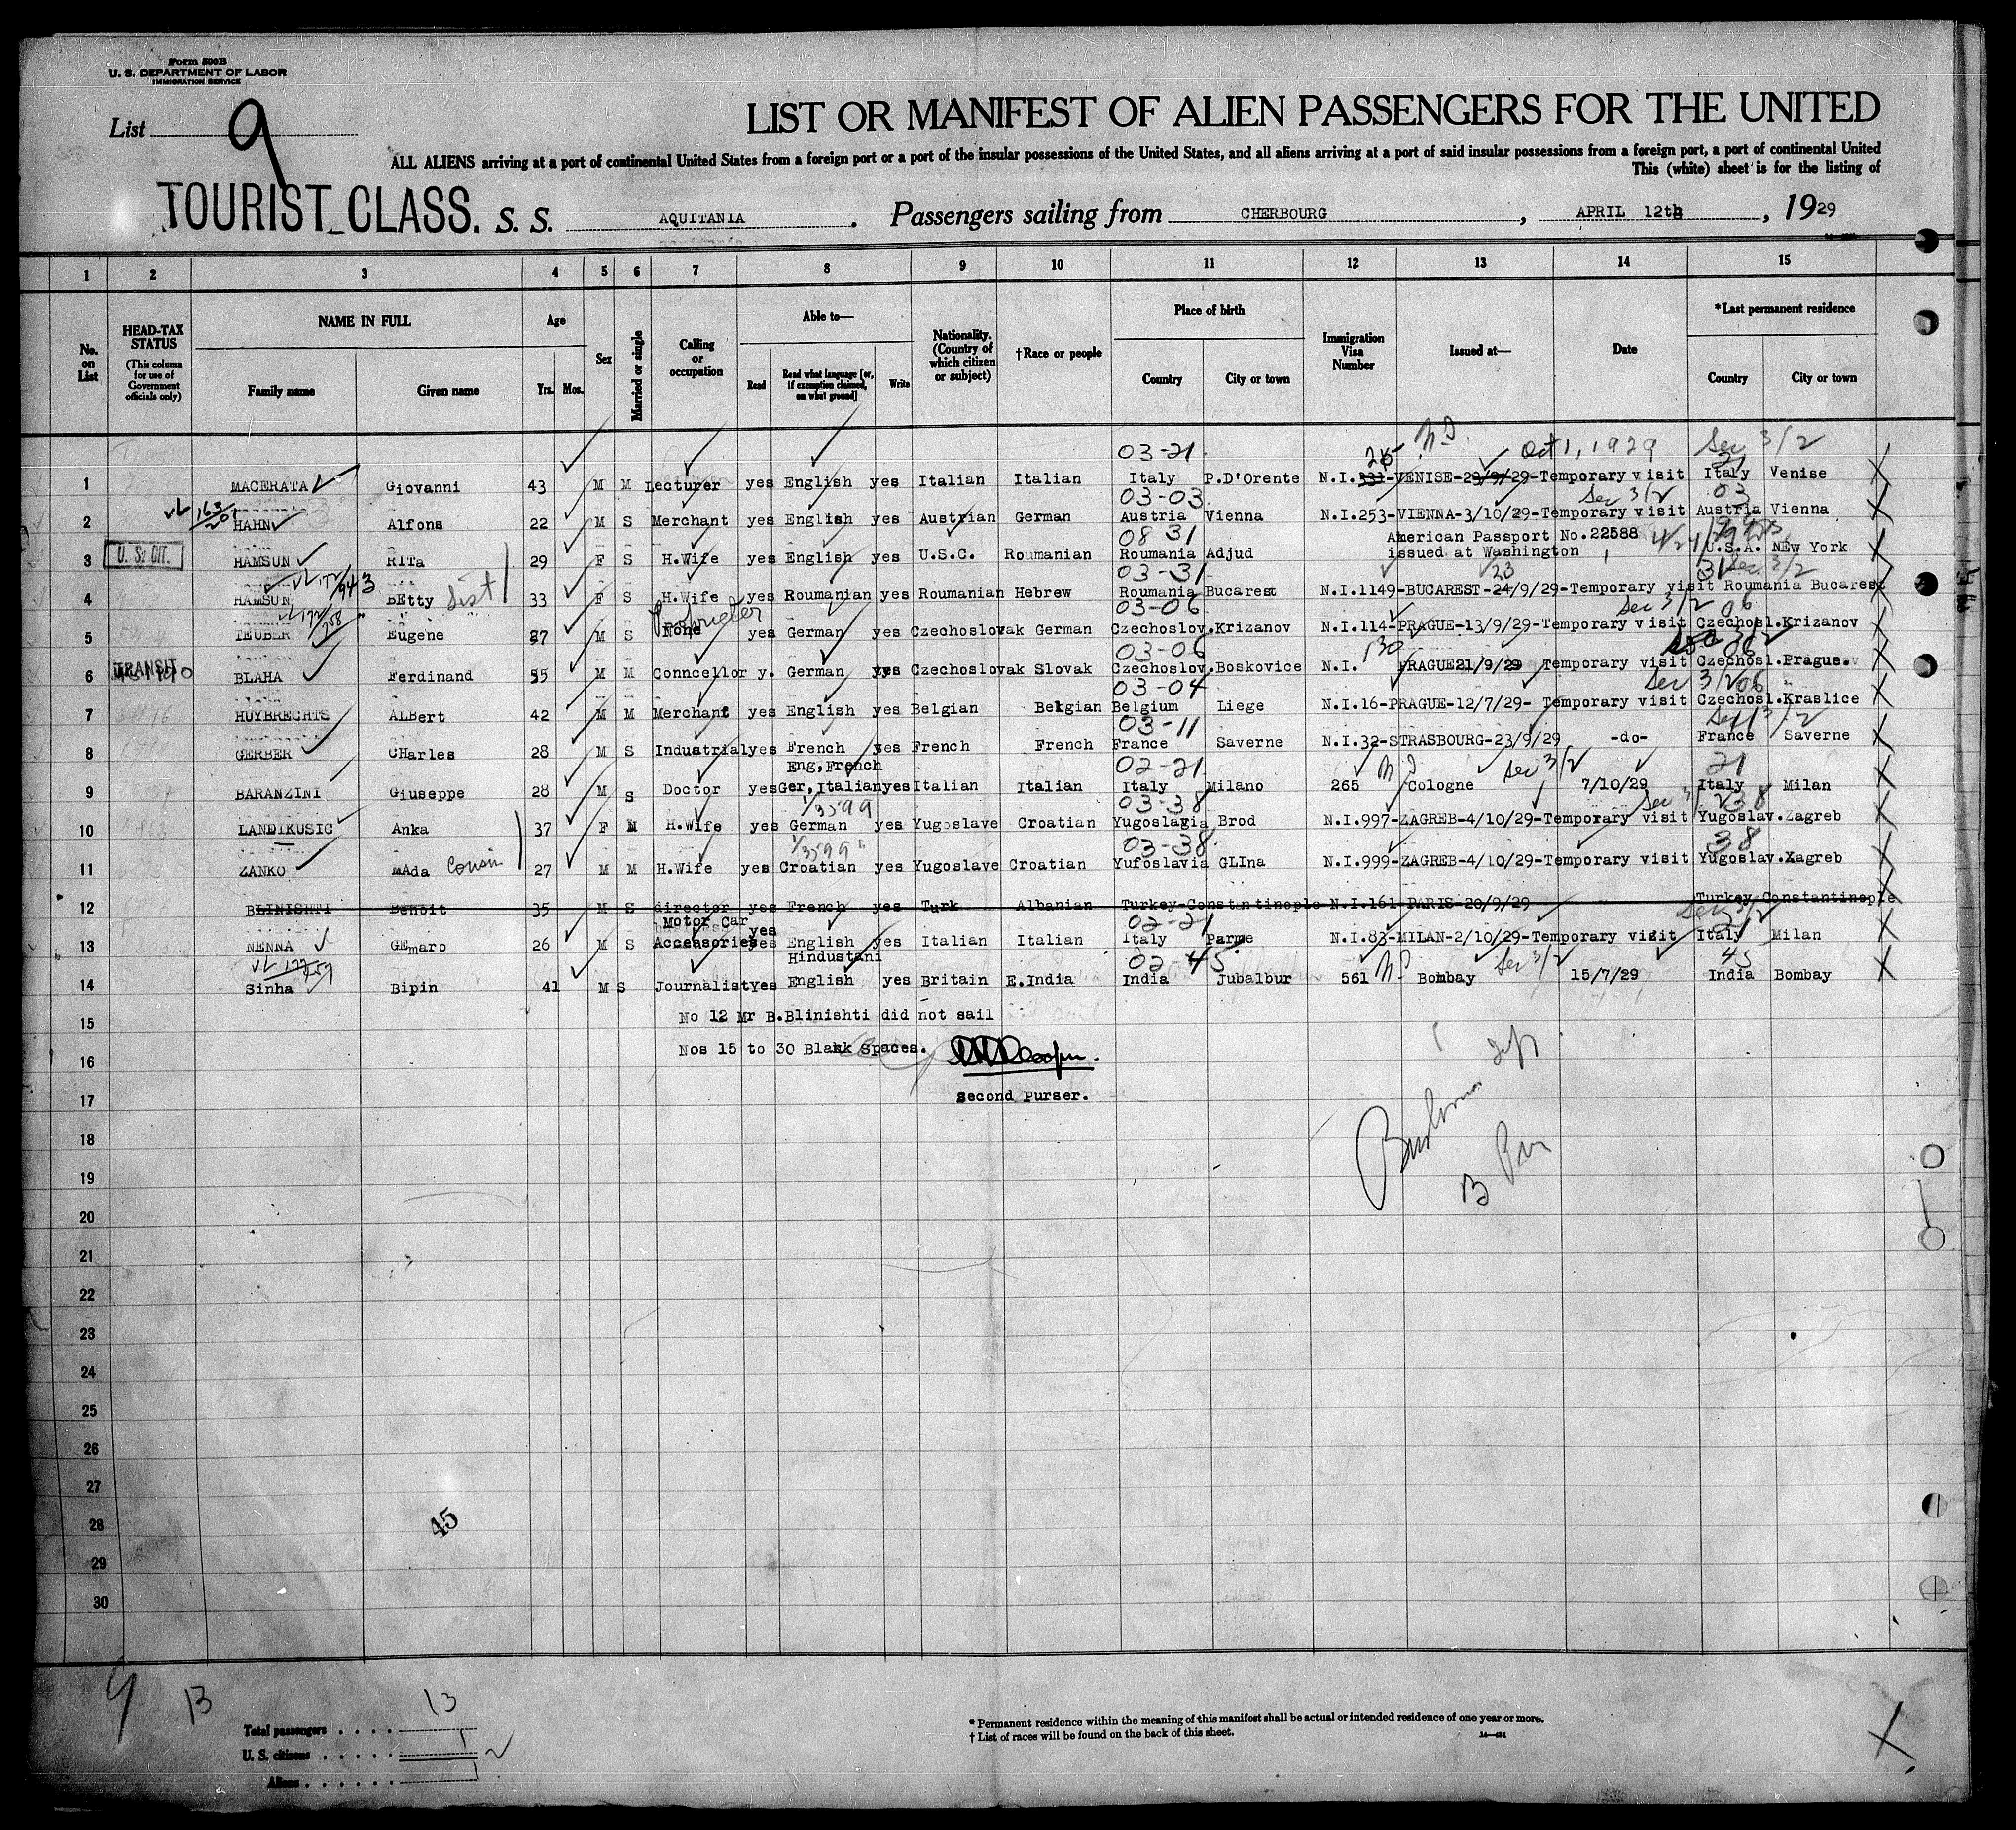 Form 500B
U. S. DEPARTMENT OF LABOR
IMMIGRATION SERVICE
List 9
LIST OR MANIFEST OF ALIEN PASSENGERS FOR THE UNITED
ALL ALIENS arriving at a port of continental United States from a foreign port or a port of the insular possessions of the United States, and all aliens arriving at a port of said insular possessions from a foreign port, a port of continental United
This (white) sheet is for the listing of
TOURIST CLASS. S. S. AQUITANIA. Passengers sailing from CHERBOURG, APRIL 12th, 1929
1 2 3 4 5 6 7 8 9 10 11 12 13 14 15
No. on List
HEAD-TAX STATUS (This column for use of Government officials only)
NAME IN FULL
Family name Given name
Age
Yrs. Mos.
Sex
Married or single
Calling or occupation
Able to—
Read Read what language [or, if exemption claimed, on what ground] Write
Nationality. (Country of which citizen or subject)
†Race or people
Place of birth
Country City or town
Immigration Visa Number
Issued at—
Date
*Last permanent residence
Country City or town
03-21 25 N.I. Oct 1, 1929 Sec 3/2
21
1 MACERATA Giovanni 43 M M Lecturer yes English yes Italian Italian Italy P.D'Orente N.I.331-VENISE-29/9/29-Temporary visit Italy Venise
163/201 03-03 Sec 3/2 03
2 HAHN Alfons 22 M S Merchant yes English yes Austrian German Austria Vienna N.I.253-VIENNA-3/10/29-Temporary visit Austria Vienna
08 31 American Passport No.22588
3 U. S. CIT. HAMSUN RITa 29 F S H.Wife yes English yes U.S.C. Roumanian Roumania Adjud issued at Washington U.S.A. NEw York
03-31 23 31 Sec 3/2
4 HAMSUN BEtty Sist 33 F S H.Wife yes Roumanian yes Roumanian Hebrew Roumania Bucarest N.I.1149-BUCAREST-24/9/29-Temporary visit Roumania Bucarest
03-06 Sec 3/2 06
5 TEUBER Eugene M S None yes German yes Czechoslovak German Czechoslov.Krizanov N.I.114-PRAGUE-13/9/29-Temporary visit Czechosl.Krizanov
03-06 130 06
6 TRANSIT BLAHA Ferdinand 55 M M Conncellor y. German yes Czechoslovak Slovak Czechoslov.Boskovice N.I. PRAGUE21/9/29 Temporary visit Czechosl.Prague.
03-04 Sec 3/2 06
7 HUYBRECHTS ALBert 42 M M Merchant yes English yes Belgian Belgian Belgium Liege N.I.16-PRAGUE-12/7/29- Temporary visit Czechosl.Kraslice
03-11 Sec 3/2
8 GERBER CHarles 28 M S Industrial yes French yes French French France Saverne N.I.32-STRASBOURG-23/9/29 -do- France Saverne
Eng,French 02-21 Sec 3/2 21
9 BARANZINI Giuseppe 28 M S Doctor yes Ger,Italian yes Italian Italian Italy Milano 265 Cologne 7/10/29 Italy Milan
03-38 38
10 LANDIKUSIC Anka 37 F M H.Wife yes German yes Yugoslave Croatian Yugoslavia Brod N.I.997-ZAGREB-4/10/29-Temporary visit Yugoslav.Zagreb
03-38 38
11 ZANKO mAda Cousin 27 M M H.Wife yes Croatian yes Yugoslave Croatian Yufoslavia GLIna N.I.999-ZAGREB-4/10/29-Temporary visit Yugoslav.Xagreb
12 BLINISHTI Benoit 35 M S director yes French yes Turk Albanian Turkey-Constantinople N.I.161-PARIS-20/9/29 Turkey Constantinople
Motor Car yes 02-21 Sec 3/2 21
13 NENNA GEmaro 26 M S Accessories yes English yes Italian Italian Italy Parme N.I.83-MILAN-2/10/29-Temporary visit Italy Milan
Hindustani 02-45 Sec 3/2 45
14 Sinha Bipin 41 M S Journalist Yes English yes Britain E.India India Jubalbur 561 Bombay 15/7/29 India Bombay
15 No 12 Mr B.Blinishti did not sail
16 Nos 15 to 30 Blank Spaces.
17 Second Purser.
18
19
20
21
22
23
24
25
26
27
28
45
29
30
9 13 13
Total passengers
U. S. citizens 1
Aliens
* Permanent residence within the meaning of this manifest shall be actual or intended residence of one year or more.
† List of races will be found on the back of this sheet.